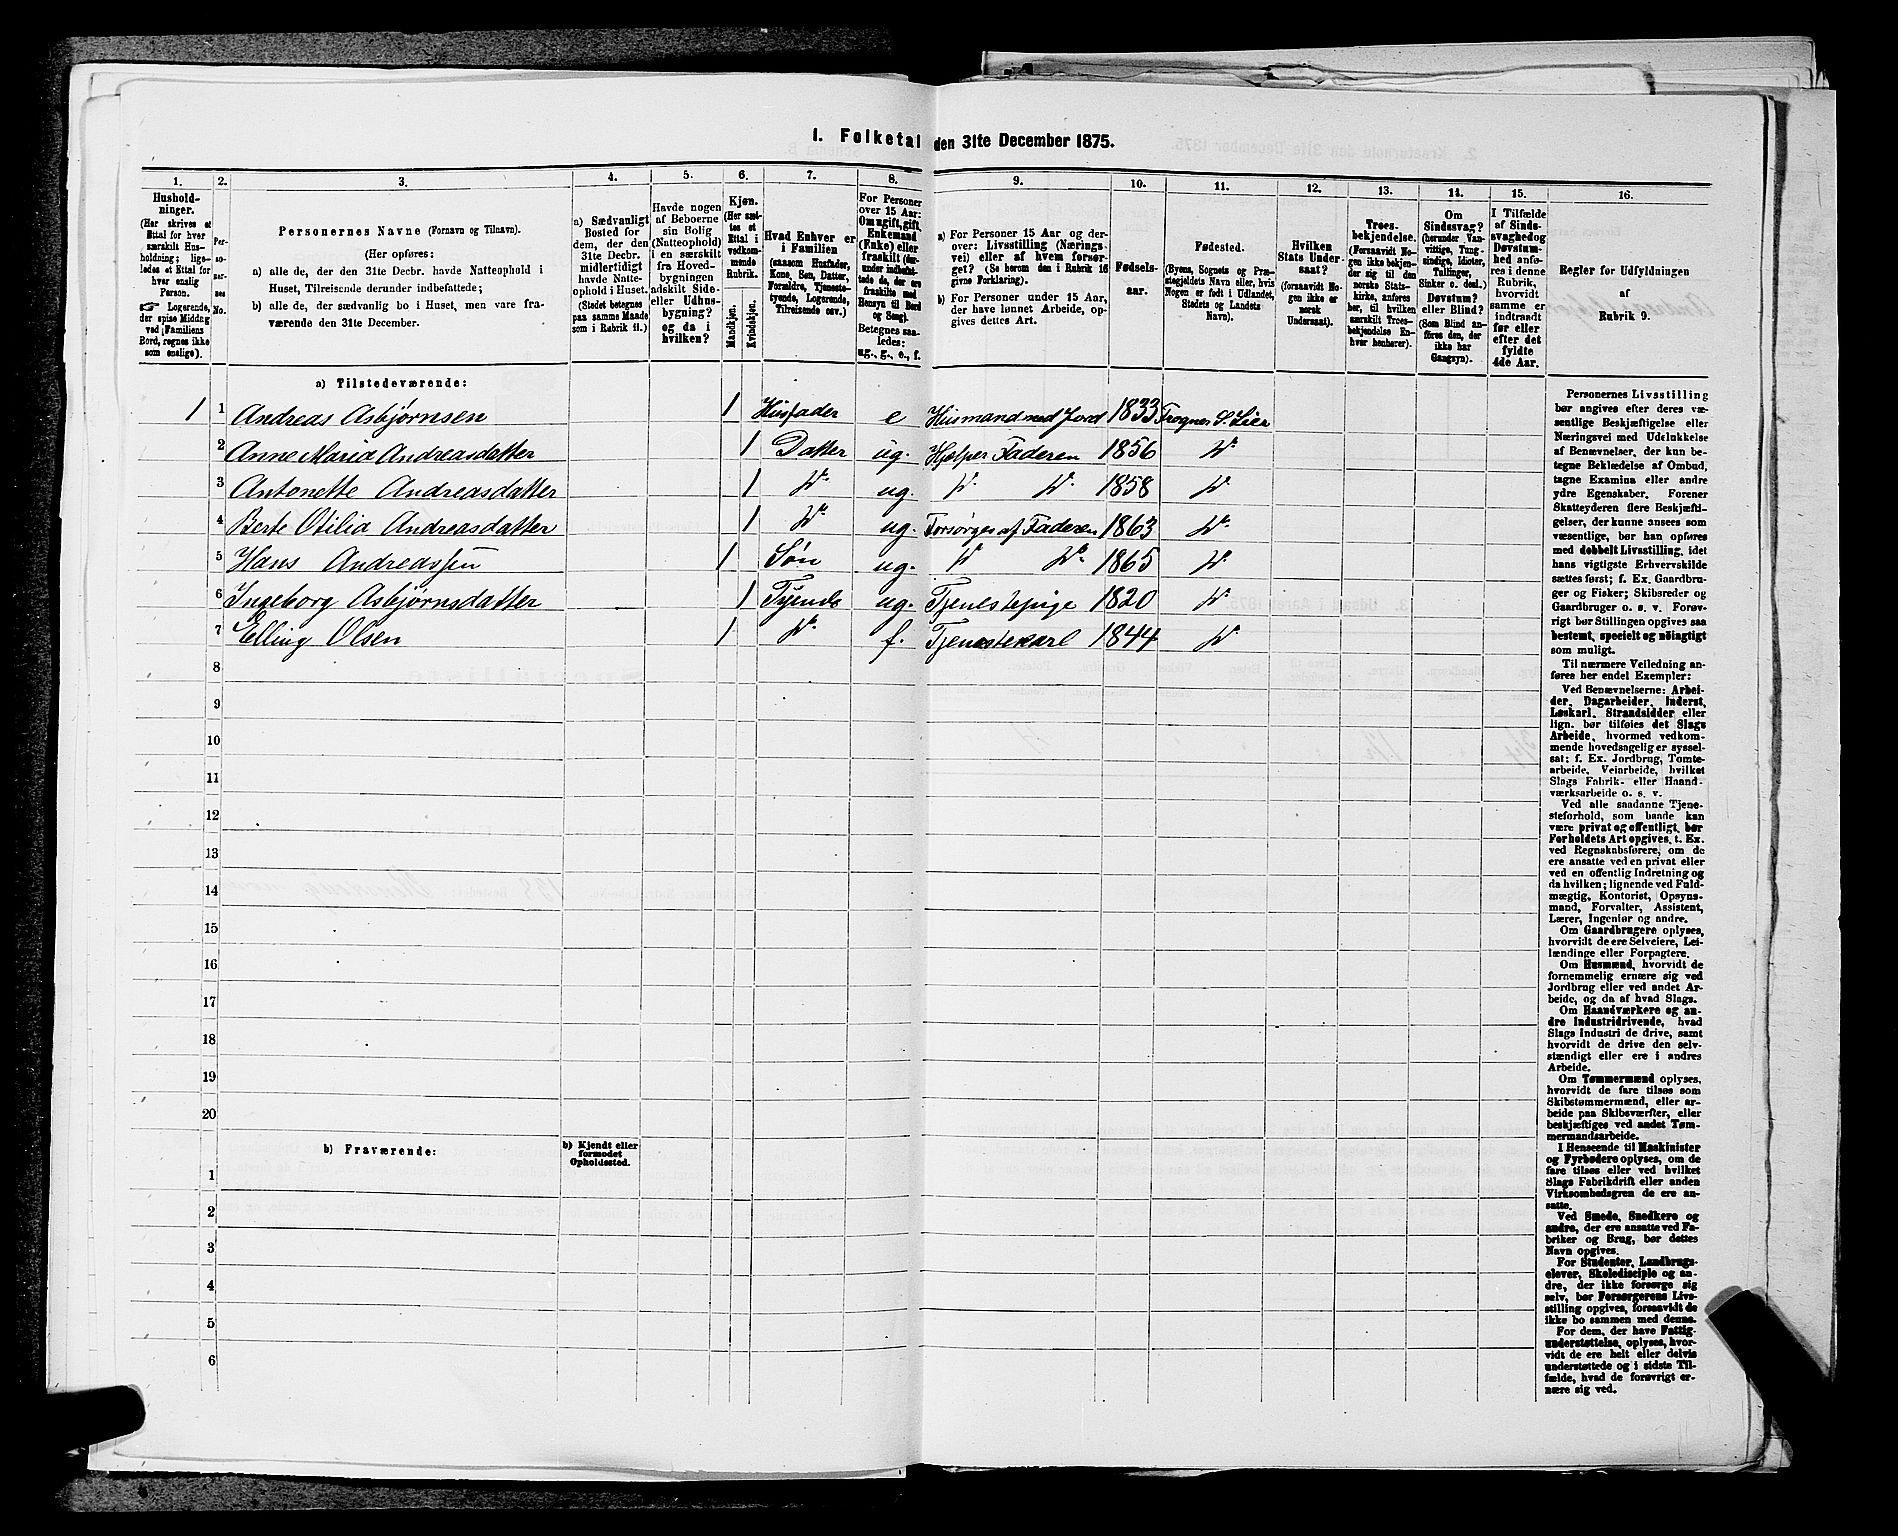 I. Folketal den 31te December 1875.
1. 2. 3. 4. 5. 6. 7. 8. 9. 10. 11. 12. 13. 14. 15. 16.
Hushold-
ninger.
(Her skrives et
Ettal for hver
særskilt Hus-
holdning; lige-
ledes et Ettal for
hver enslig
Person.
☞ Logerende,
der spise Middag
ved Familiens
Bord, regnes ikke
som enslige).
Per-
so-
ner-
nes
No.
Personernes Navne (Fornavn og Tilnavn).
(Her opføres:
a) alle de, der den 31te Decbr. havde Natteophold i
Huset, Tilreisende derunder indbefattede;
b) alle de, der sædvanlig bo i Huset, men vare fra-
værende den 31te December.
a) Sædvanligt
Bosted for
dem, der den
31te Decbr.
midlertidigt
havde Natte-
ophold i Huset.
(Stedet betegnes
paa samme Maade
som i Rubrik 11.)
Havde nogen
af Beboerne
sin Bolig
(Natteophold)
i en særskilt
fra Hoved-
bygningen
adskilt Side-
eller Udhus-
bygning?
og da i
hvilken?
Kjøn.
(Her sæt-
tes et
Ettal i
vedkom-
mende
Rubrik.
Mandkjøn.
Kvindekjøn.
Hvad Enhver er
i Familien
(saasom Husfader,
Kone, Søn, Datter,
Forældre, Tjeneste-
tyende, Logerende,
Tilreisende osv.)
For Personer
over 15 Aar:
Om ugift, gift,
Enkemand
(Enke) eller
fraskilt (der-
under indbefat-
tede de, der ere
fraskilte med
Hensyn til Bord
og Seng).
Betegnes saa-
ledes:
ug., g., e., f.
a) For Personer 15 Aar og der-
over: Livsstilling (Nærings-
vei) eller af hvem forsør-
get? (Se herom den i Rubrik 16
givne Forklaring).
b) For Personer under 15 Aar,
der have lønnet Arbeide, op-
gives dettes Art.
Fødsels-
aar.
Fødested.
(Byens, Sognets og Præ-
stegjeldets Navn eller, hvis
Nogen er født i Udlandet,
Stedets og Landets
Navn).
Hvilken
Stats Under-
saat?
(forsaavidt No-
gen ikke er
norsk
Undersaat).
Troes-
bekjendelse.
(Forsaavidt No-
gen ikke bekjen-
der sig til den
norske Stats-
kirke, anføres
her, til hvilken
særskilt Troes-
bekjendelse En-
hver henhører).
Om
Sindssvag?
(herunder Van-
vittige, Tung-
sindige, Idioter,
Tullinger,
Sinker o. desl.)
Døvstum?
eller Blind?
(Som Blind an-
føres den, der
ikke har
Gangsyn).
I Tilfælde
af Sinds-
svaghed og
Døvstum-
hed anfø-
res i denne
Rubrik,
hvorvidt
samme er
indtraadt
før eller
efter det
fyldte
4de Aar.
Regler for Udfyldningen
af
Rubrik 9.
a) Tilstedeværende:
1 1 Andreas Asbjørnsen 1 Husfader e Husmand med Jord 1833 Frogner S. Lier
2 Anne Maria Andreasdatter 1 Datter ug. Hjelper Faderen 1856 Do
3 Antonette Andreasdatter 1 Do ug. Do Do 1858 Do
4 Berte Otilia Andreasdatter 1 Do ug. Forsørges af Faderen 1863 Do
5 Hans Andreassen 1 Søn ug. Do Do 1865 Do
6 Ingeborg Asbjørnsdatter 1 Tyende ug. Tjenestepige 1820 Do
7 Elling Olsen 1 Do f. Tjenestekarl 1844 Do
8
9
10
11
12
13
14
15
16
17
18
19
20
b) Fraværende:
b) Kjendt eller
formodet
Opholdssted.
1
2
3
4
5
6
Personernes Livsstilling
bør angives efter deres væ-
sentlige Beskjæftigelse eller
Næringsvei med Udelukkelse
af Benævnelser, der kun be-
tegne Beklædelse af Ombud,
tagne Examina eller andre
ydre Egenskaber. Forener
Skatteyderen flere Beskjæfti-
gelser, der kunne ansees som
væsentlige, bør han opføres
med dobbelt Livsstilling, idet
hans vigtigste Erhvervskilde
sættes først; f. Ex. Gaardbru-
ger og Fisker; Skibsreder og
Gaardbruger o. s. v. Forøv-
rigt bør Stillingen opgives saa
bestemt, specielt og nøiagtigt
som muligt.
Til nærmere Veiledning an-
føres her endel Exempler:
Ved Benævnelserne: Arbei-
der, Dagarbeider, Inderst,
Løskarl, Strandsidder eller
lign. bør tilføies det Slags
Arbeide, hvormed vedkom-
mende hovedsagelig er syssel-
sat; f. Ex. Jordbrug, Tomte-
arbeide, Veiarbeide, hvilket
Slags Fabrik- eller Haand-
værksarbeide o. s. v.
Ved alle saadanne Tjene-
steforhold, som baade kan
være privat og offentligt, bør
Forholdets Art opgives, t. Ex.
ved Regnskabsførere, om de
ere ansatte ved en privat eller
ved en offentlig Indretning og
da hvilken; lignende ved Fuld-
mægtig, Kontorist, Opsyns-
mand, Forvalter, Assistent,
Lærer, Ingeniør og andre.
Om Gaardbrugere oplyses,
hvorvidt de ere Selveiere, Lei-
lændinge eller Forpagtere.
Om Husmænd, hvorvidt de
fornemmelig ernære sig ved
Jordbrug eller ved andet Ar-
beide, og da af hvad Slags.
Om Haandværkere og an-
dre Industridrivende, hvad
Slags Industri de drive, samt
hvorvidt de drive den selv-
stændigt eller ere i andres
Arbeide.
Om Tømmermænd oplyses,
hvorvidt de fare tilsøs som
Skibstømmermænd, eller ar-
beide paa Skibsværfter, eller
beskjæftiges ved andet Tøm-
mermandsarbeide.
I Henseende til Maskinister
og Fyrbødere oplyses, om de
fare tilsøs eller ved hvilket
Slags Fabrikdrift eller anden
Virksomhedsgren de ere an-
satte.
Ved Smede, Snedkere og
andre, der ere ansatte ved Fa-
briker og Brug, bør dettes
Navn opgives.
For Studenter, Landbrugs-
elever, Skoledisciple og an-
dre, der ikke forsørge sig
selv, bør Forsørgerens Livs-
stilling opgives, forsaavidt de
ikke bo sammen med denne.
For dem, der have Fattig-
understøttelse, oplyses, hvor-
vidt de ere helt eller delvis
understøttede og i sidste Til-
fælde, hvad de forøvrigt er-
nære sig ved.